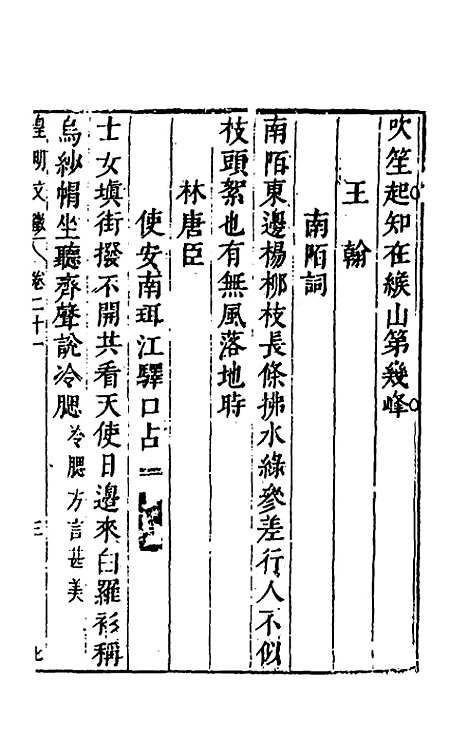 吹笙起知在緱山第幾峰
王翰
南陌詞
南陌東邊楊柳枝長條拂水綠參差行人不似
枝頭絮也有無風落地時
林唐臣
使安南珥江驛口占二
士女塡街撥不開共看天使日邊來白羅衫稱
烏紗帽坐聽齊聲說冷腮冷腮方言甚美
皇明文徵卷二十一 三 七